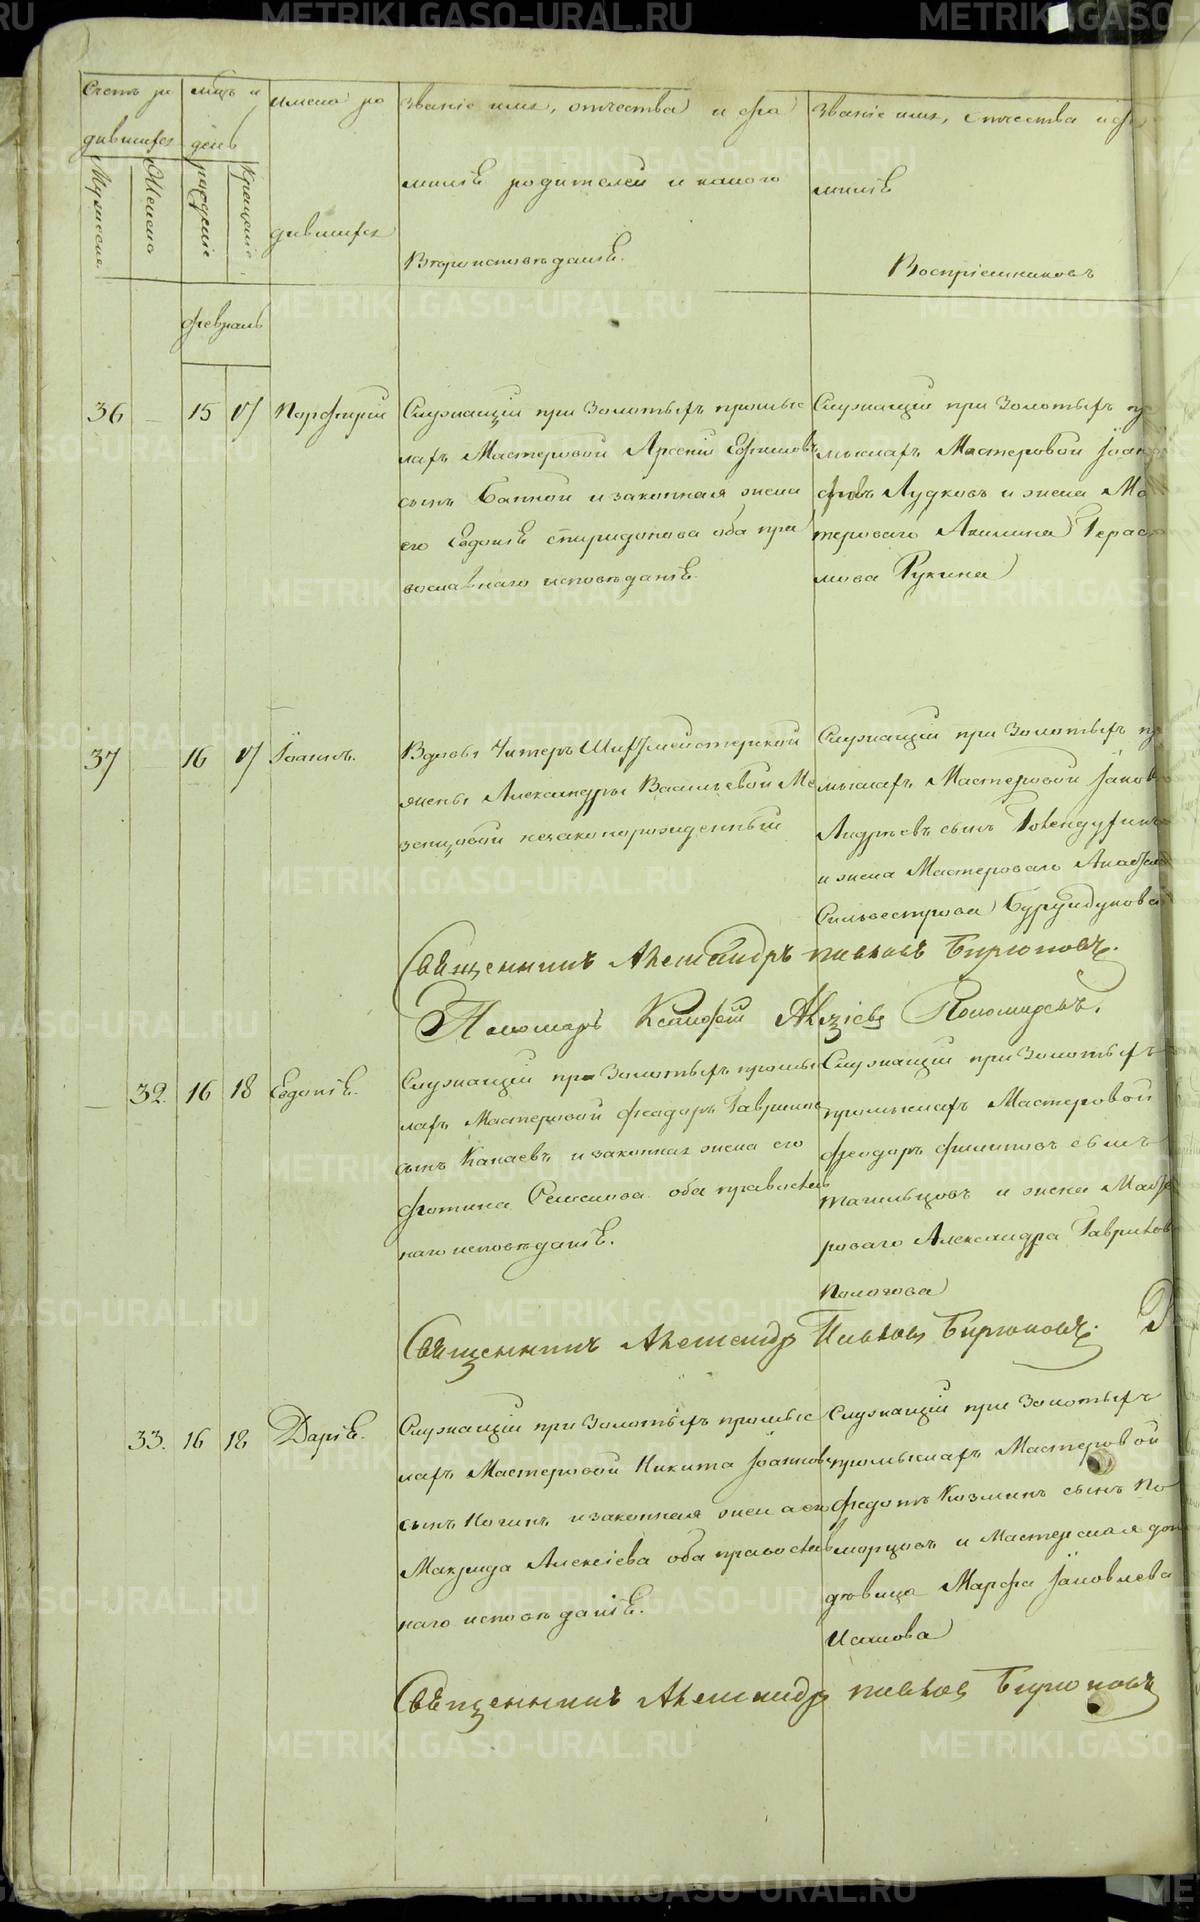 Счетъ ро
дившихся
мцъ и
день
имена ро
дившихся
Званіе имя, отчества и фа
миліѣ родителей и какого
Вѣроисповѣданіѣ.
Званіе имя, отчества и фа
миліѣ
Воспріемниковъ
Мужеска
Женска
рожденіе
Крещеніе
февраль
36 — 15 17 Порфирій
Служащій при Золотыхъ промыс
лахъ Мастеровой Арсеній Ефимовъ
сынъ и законная жена
его Евдокіѣ Спиридонова оба пра
вославнаго исповѣданіѣ.
Служащій при Золотыхъ пр
мыслахъ Мастеровой Іоан
Лудковъ и жена Ма
тероваго Акилина Гераси
мова Рукина
37 16 17 Іоаннъ.
Вдовы Унтеръ Шихтмейстерской
жены Александры Васильевой Ме
зенцовой незаконорожденный
Служащій при Золотыхъ пр
мыслахъ Мастеровой Іаковъ
Андреевъ сынъ
и жена Мастероваго
Сильвестрова Бурундукова
Священникъ Александръ Павловъ Бирюковъ.
Пономарь Пономаревъ.
— 32. 16 18 Евдокіѣ.
Служащій при Золотыхъ промыс
лахъ Мастеровой Феодоръ Гаврилов
сынъ Капаевъ и законная жена его
Фотина оба православ
наго исповѣданіѣ.
Служащій при Золотыхъ
промыслахъ Мастеровой
Феодоръ Филиповъ сынъ
Тагильцовъ и жена Масте
роваго Александра Гаврилова
Пологова
Священникъ Александръ Павловъ Бирюковъ.
33. 16 18 Даріѣ.
Служащій при Золотыхъ промыс
лахъ Мастеровой Никита Іоаннов
сынъ и законная жена его
Макрида Алексіева оба православ
наго исповѣданіѣ.
Служащій при Золотыхъ
промыслахъ Мастеровой
Федотъ Козминъ сынъ По
морцовъ и Мастерская доч
дѣвица Марфа Іаковлева
Исакова
Священникъ Александръ Павловъ Бирюковъ
METRIKI.GASO-URAL.RU